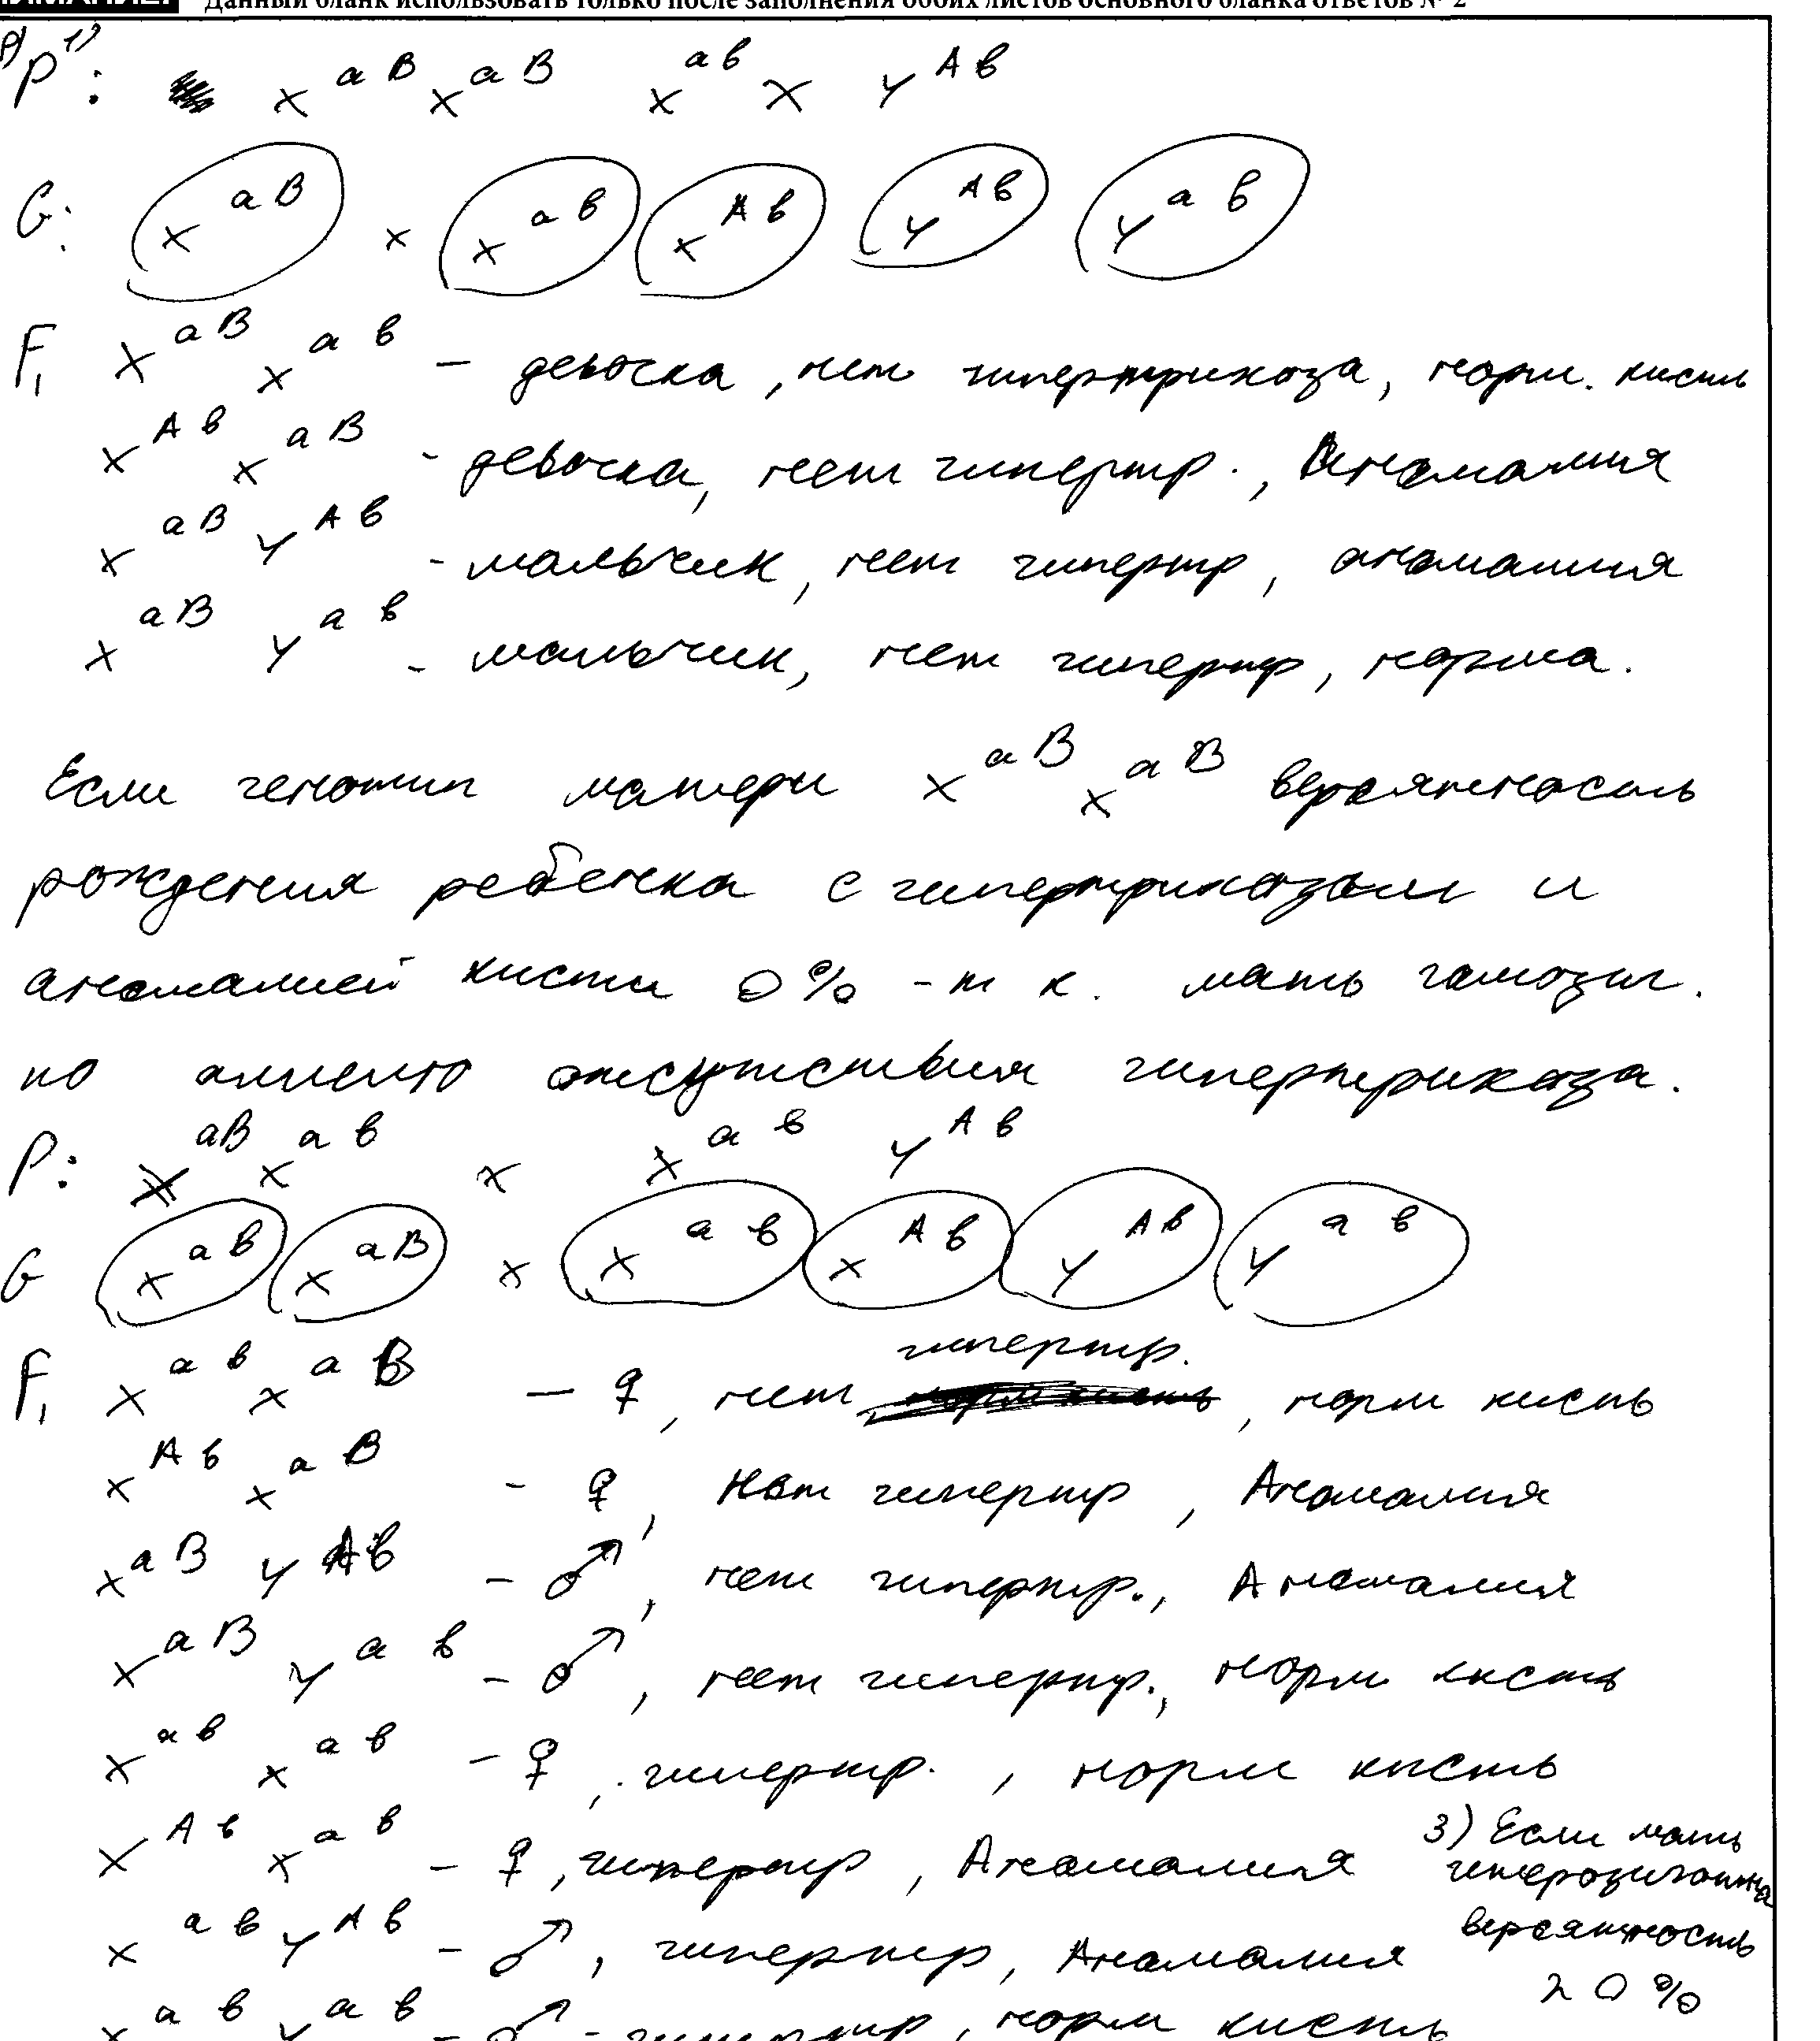 Данный бланк использовать только после заполнения обоих листов основного бланка ответов № 2
P 1): X aB X aB X ab X Y Ab
G: X aB x X ab X Ab Y Ab Y ab
F1 X aB X ab – девочка, нет гипертрихоза, норм. кисть
X Ab X aB - девочка, нет гипертр., Аномалия
X aB Y Ab - мальчик, нет гипертр, аномалия
X aB Y ab - мальчик, нет гипертр, норма.
Если генотип матери X aB X aB вероятность
рождения ребенка с гипертрихозом и
аномалией кисти 0% - т к. мать гомозиг.
по аллелю отсутствия гипертрихоза.
P: X aB X ab x X ab Y Ab
G X ab X aB x X ab X Ab Y Ab Y ab
F1 X ab X aB – ♀, нет гипертр., норм кисть
X Ab X aB - ♀, Нет гипертр, Аномалия
X aB Y Ab - ♂, нет гипертр., Аномалия
X aB Y ab - ♂, нет гипертр., норм кисть
X ab X ab - ♀, гипертр., норм кисть
X Ab X ab - ♀, гипертр, Аномалия
X ab Y Ab - ♂, гипертр, Аномалия
X ab Y ab - ♂ - гипертр, норм кисть
3) Если мать
гетерозиготна
вероятность
20%